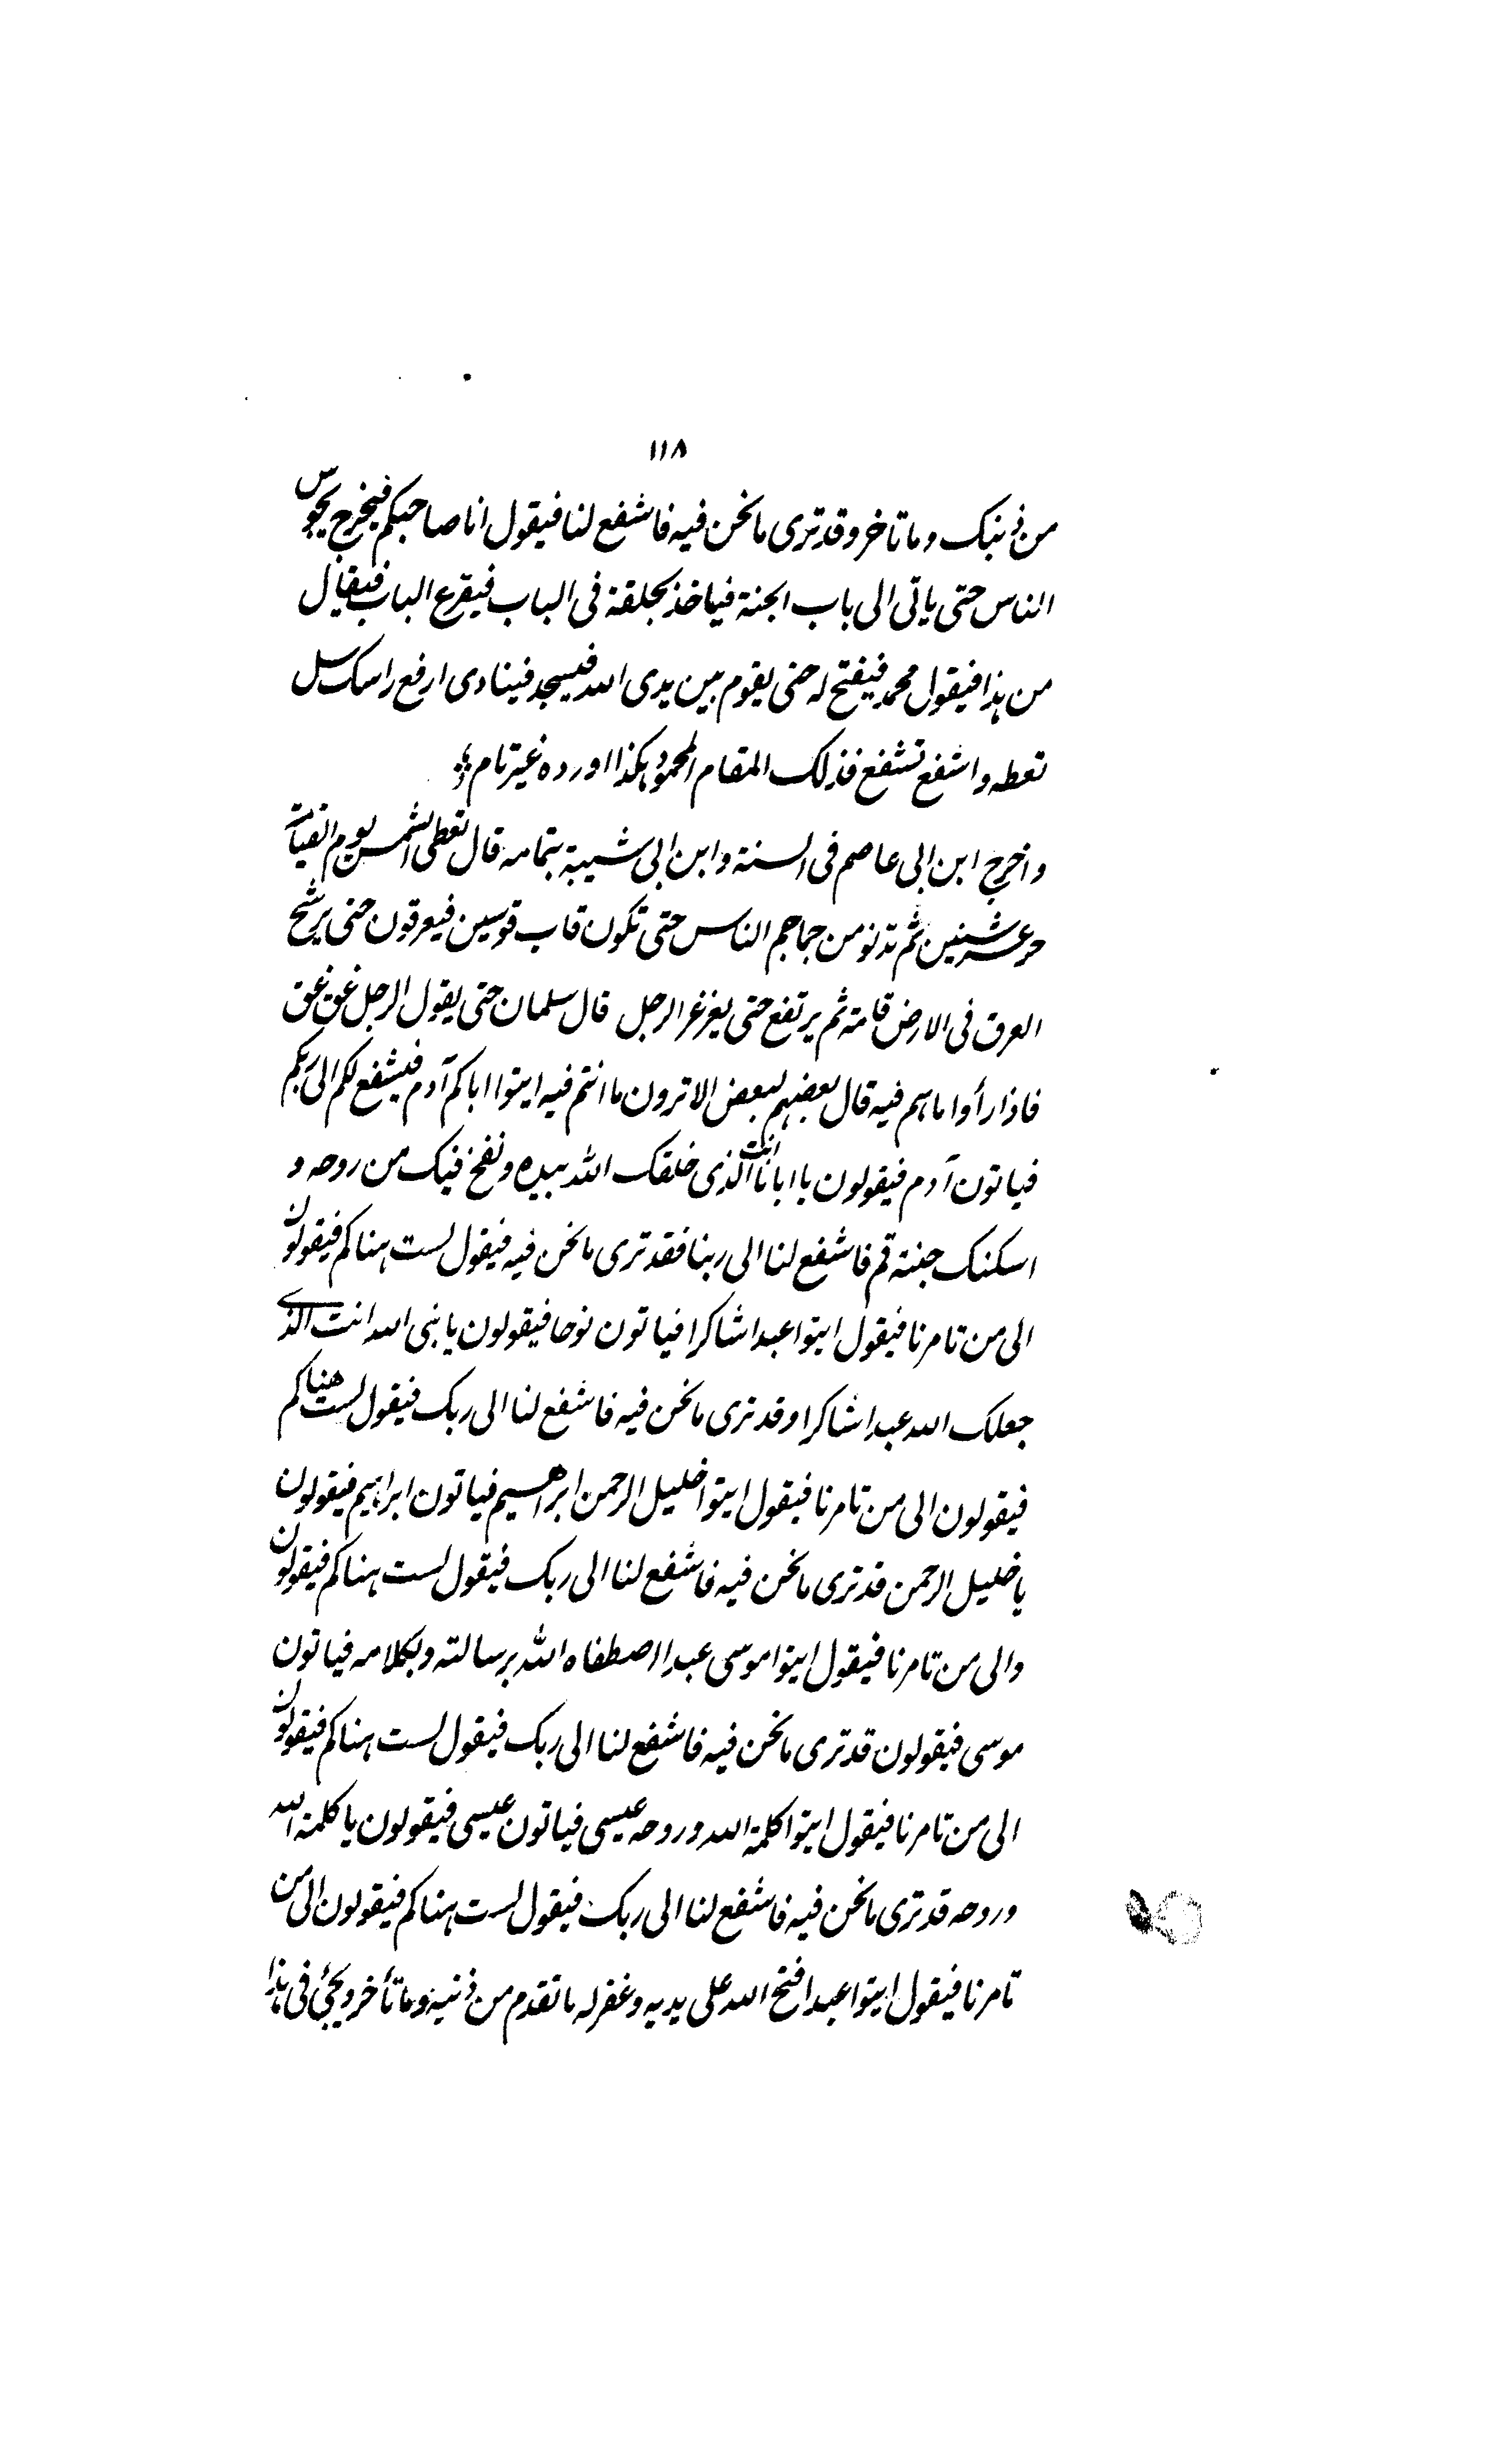 ۱۱۸
من ذنبک وما تاخر وقد ترى ما نحن فیه فاشفع لنا فیقول انا صاحبکم فیخرج یجوس
الناس حتى یاتى الى باب الجنة فیاخذ بحلقة فى الباب فیقرع الباب فیقال
من ہذا فیقول محمد فیفتح له حتى یقوم بین یدى الله فیسجد فینادى ارفع راسک سل
تعطه واشفع تشفع فذلک المقام المحمود ہکذا اورده غیر تام
واخرج ابن ابى عاصم فى السنة وابن ابى شیبة بتمامه قال تعطى الشمس یوم القیامة
حر عشر سنین ثم تدنو من جماجم الناس حتى تکون قاب قوسین فیعرقون حتى یرشح
العرق فى الارض قامة ثم یرتفع حتى یغرغر الرجل قال سلمان حتى یقول الرجل غق غق
فاذا رأوا ماہم فیه قال بعضہم لبعض الا ترون ما انتم فیه ایتوا اباکم آدم فیشفع لکم الى ربکم
فیاتون آدم فیقولون یا ابانا انت الذى خلقک الله بیده ونفخ فیک من روحه و
اسکنک جنته قم فاشفع لنا الى ربنا فقد ترى ما نحن فیه فیقول لست ہناکم فیقولون
الى من تامرنا فیقول ایتوا عبدا شاکرا فیاتون نوحا فیقولون یا نبى الله انت الذى
جعلک الله عبدا شاکرا وقد ترى ما نحن فیه فاشفع لنا الى ربک فیقول لست هناکم
فیقولون الى من تامرنا فیقول ایتوا خلیل الرحمن ابراهیم فیاتون ابراہیم فیقولون
یا خلیل الرحمن قد ترى ما نحن فیه فاشفع لنا الى ربک فیقول لست ہناکم فیقولون
والى من تامرنا فیقول ایتوا موسى عبدا اصطفاه الله برسالته وبکلامه فیاتون
موسى فیقولون قد ترى ما نحن فیه فاشفع لنا الى ربک فیقول لست ہناکم فیقولون
الى من تامرنا فیقول ایتوا کلمة الله وروحه عیسى فیاتون عیسى فیقولون یا کلمة الله
وروحه قد ترى ما نحن فیه فاشفع لنا الى ربک فیقول لست ہناکم فیقولون الى من
تامرنا فیقول ایتوا عبدا فتح الله على یدیه وغفر له ما تقدم من ذنبه وما تأخر ویجئ فى ہذا